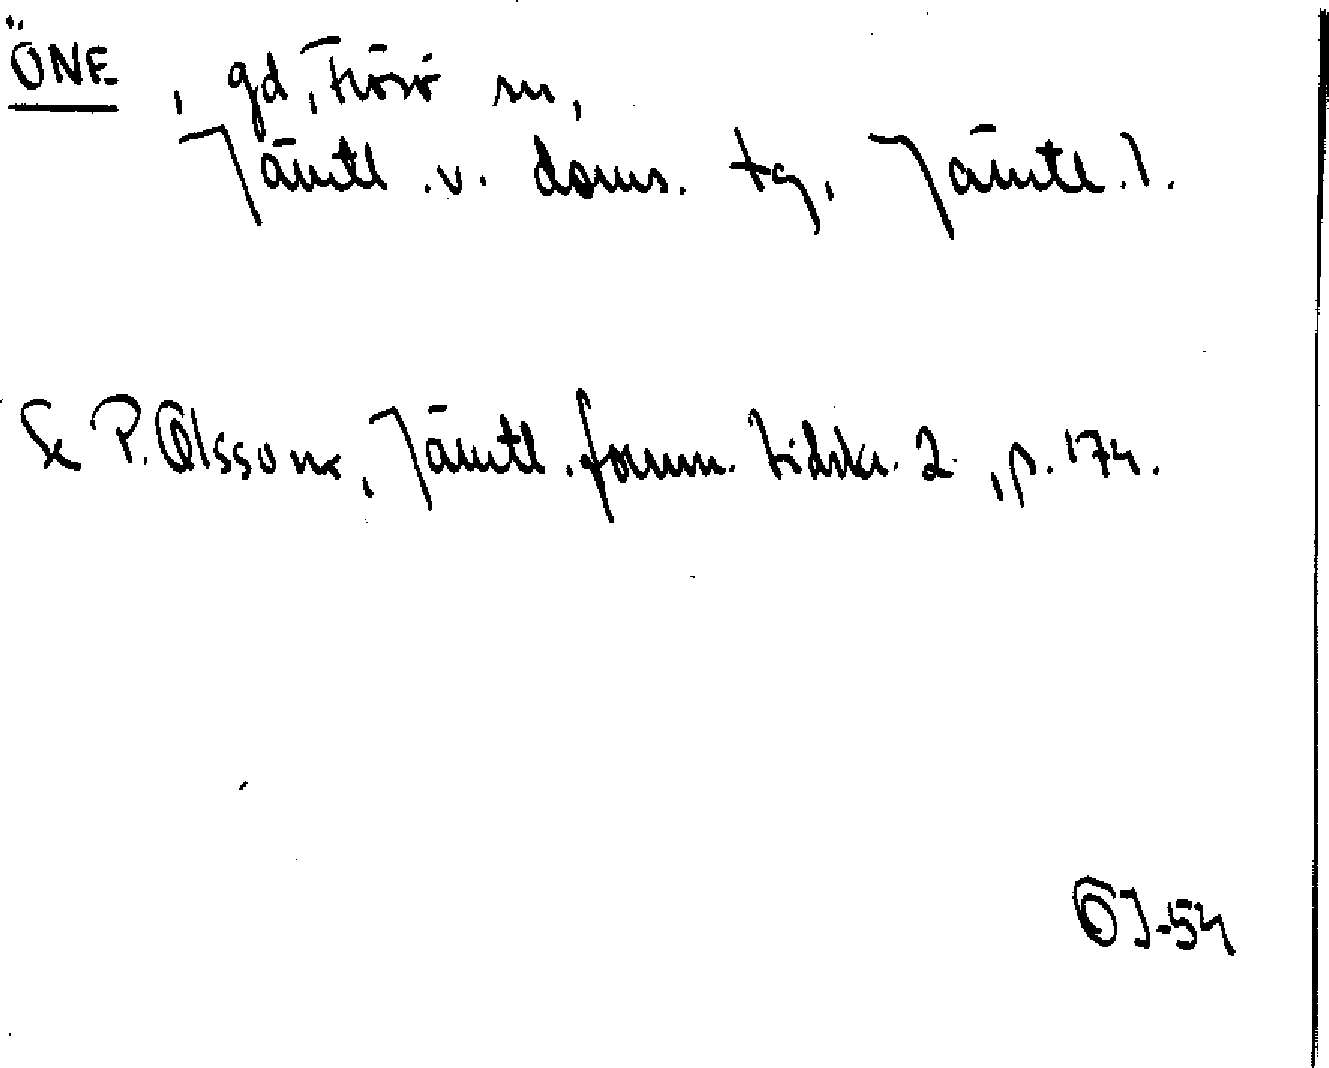 ÖNE, gd, Frösö sn,
Jämtl. v. doms. tg, Jämtl. l.
Se P. Olsson, Jämtl. fornm. tidskr. 2, p. 174.
OJ-54